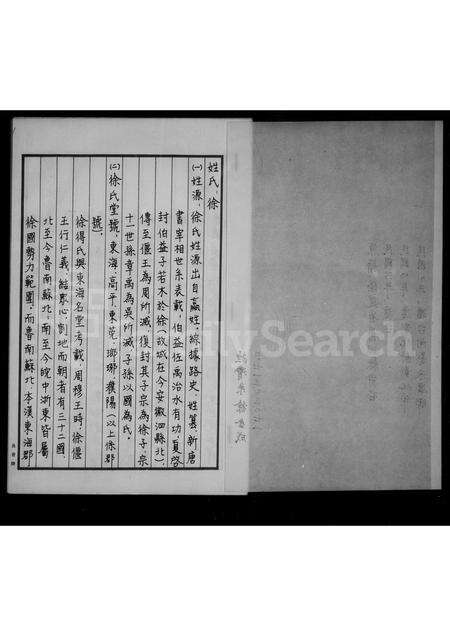 姓氏、徐
㈠姓源、徐氏姓源出自嬴姓、綜據路史、姓纂、新唐
書宰相世系表載、伯益佐禹治水有功、夏啓
封伯益子若木於徐（故城在今安徽泗縣北）、
傳至偃王為周所滅、復封其子宗為徐子、宗
十一世孫章禹為吳所滅、子孫以國為氏。
㈡徐氏堂號、東海、高平、東莞、瑯琊、濮陽（以上係郡
號）。
徐得氏與東海名堂考載、周穆王時、徐偃
王行仁義、結眾心、割地而朝者有三十二國、
北至今魯南蘇北、南至今皖中浙東皆屬
徐國勢力範圍、而魯南蘇北、本漢東海郡
FamilySearch